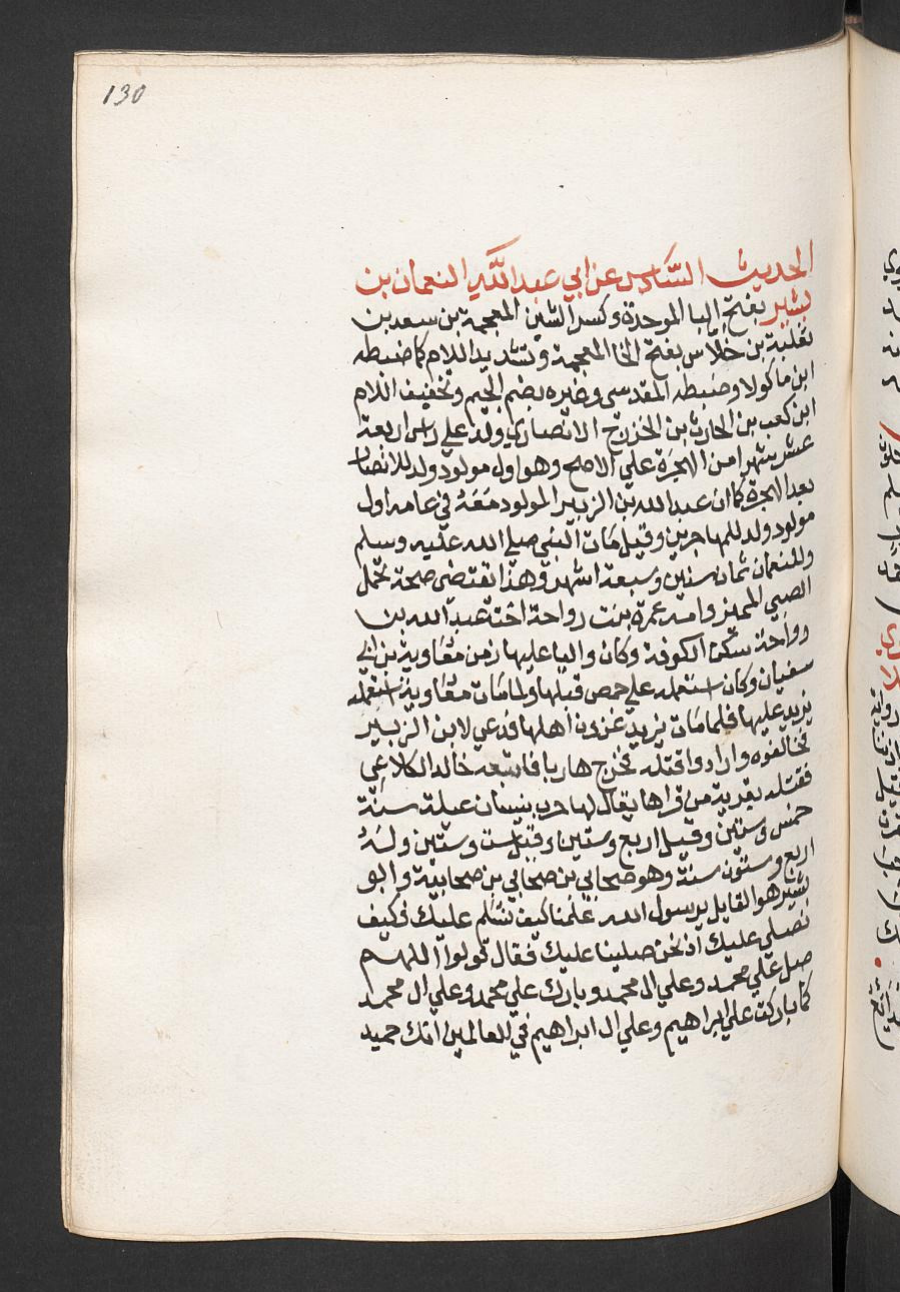 130
الحديث السادس عن ابي عبد الله النعمان بن
بشير بفتح البا الموحدة وكسر الشين المعجمة بن سعد بن
ثعلبة بن خلاس بفتح الخا المعجمة وتشديد اللام كما ضبطه
ابن ماكولا وضبطه المقدسي وغيره بضم الجيم وتخفيف اللام
ابن كعب بن الحارث بن الخزرج الانصاري ولد علي راس اربعة
عشر شهرا من الهجرة علي الاصح وهو اول مولود ولد للانصار
بعد الهجرة كما ان عبد الله بن الزبير المولود معه في عامه اول
مولود ولد للمهاجرين وقيل مات النبي صلي الله عليه وسلم
وللنعمان ثمان سنين وسبعة اشهر وهذا يقتضي صحة تحمل
الصبي المميز وامه عمرة بنت رواحة اخت عبد الله بن
رواحة سكن الكوفة وكان واليا عليها زمن معاوية بن ابي
سفيان وكان استعمله علي حمص قبلها ولما مات معاوية استعمله
يزيد عليها فلما مات يزيد اهلها فدعي لابن الزبير
فخالفوه وارادوا قتله فخرج هاربا فاتبعه خالد الكلاعي
فقتله بقرية من قراها يقال لها غيلة سنة
خمس وستين وقيل اربع وستين وقيل ست وستين وله
اربع وستون سنة وهو صحابي بن صحابي بن صحابية وابو
بشير هو القايل يرسول الله علمنا كيف نسلم عليك فكيف
نصلي عليك اذ نحن صلينا عليك فقال قولوا اللهم
صل علي محمد وعلي ال محمد وبارك علي محمد وعلي ال محمد
كما باركت علي ابراهيم وعلي ال ابراهيم في العالمين انك حميد